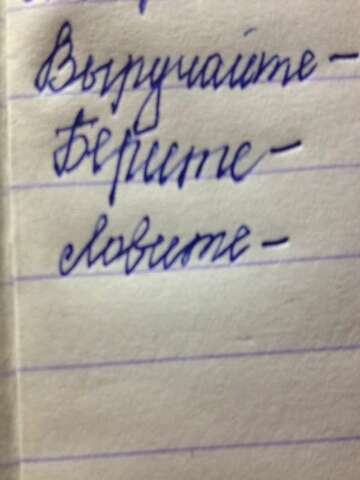 Выручайте -
Берите -
Ловите -